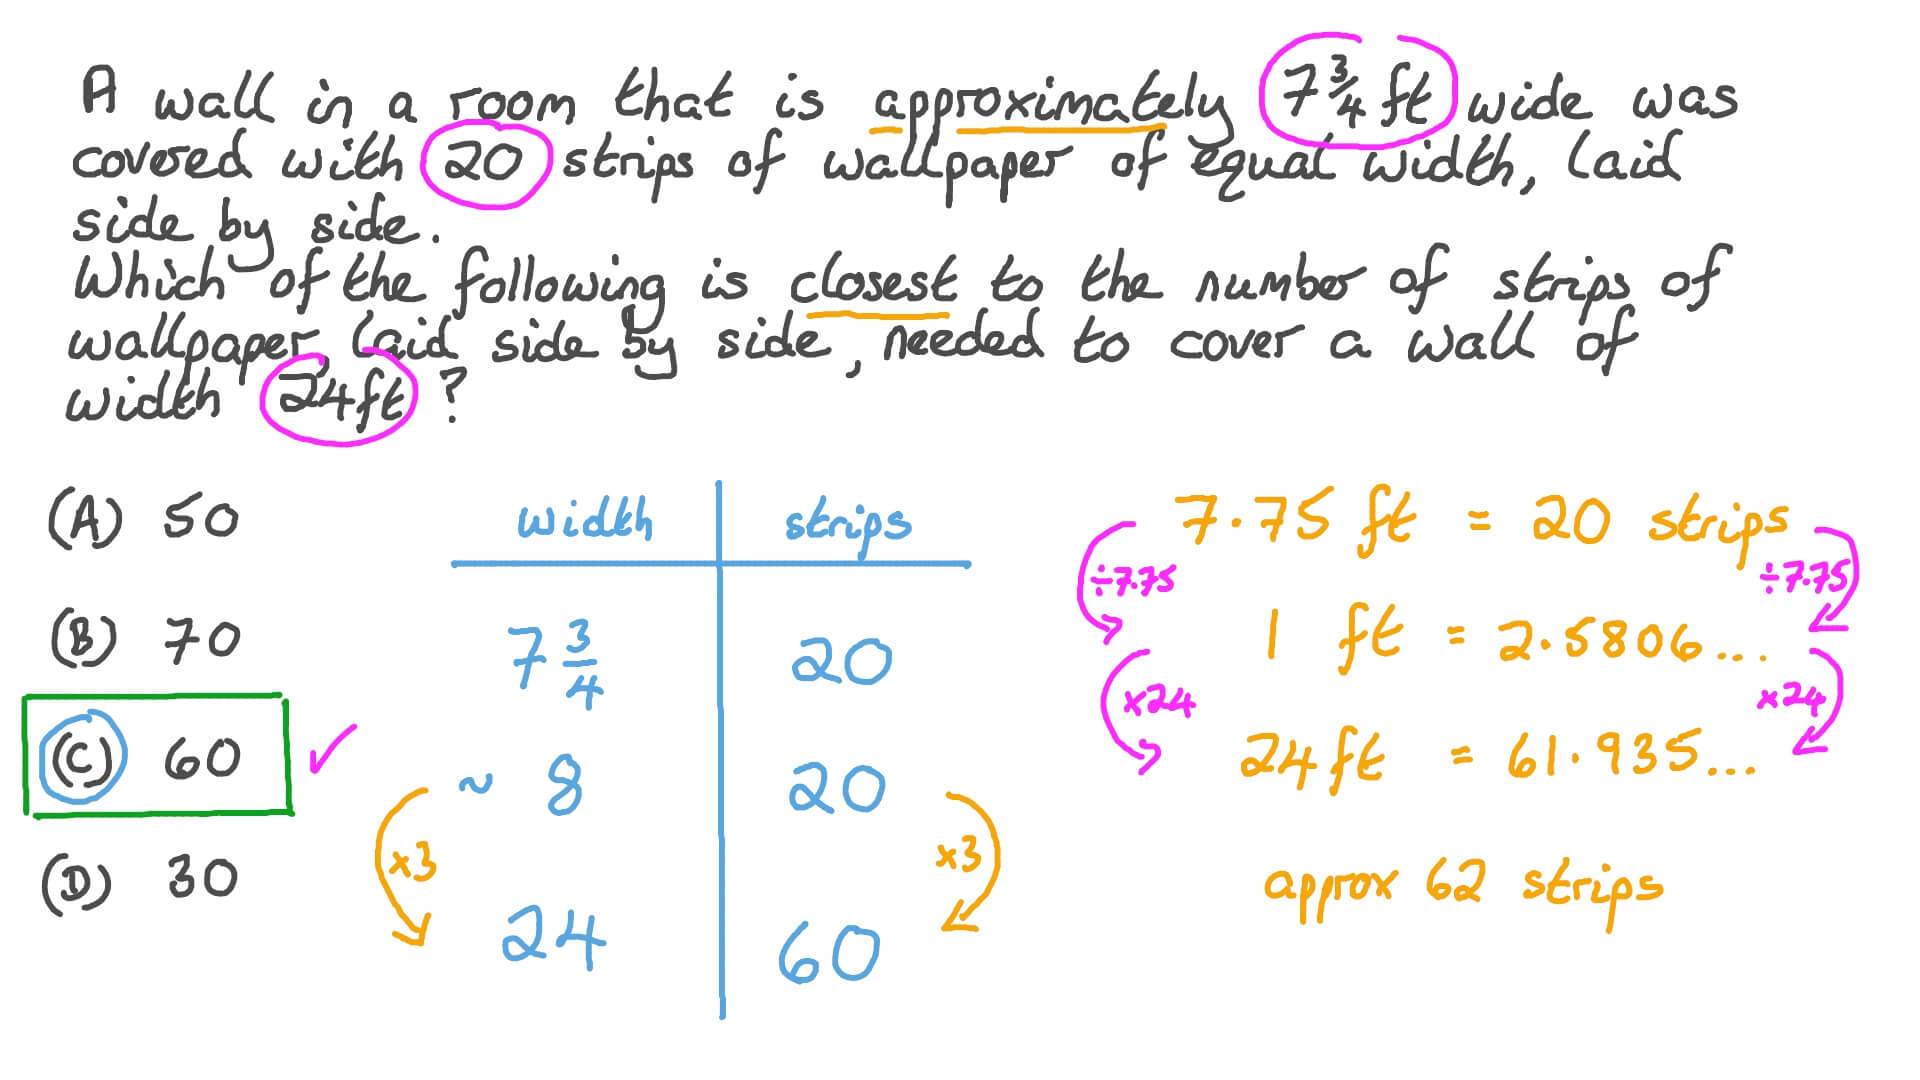 A wall in a room that is approximately 7 3/4 ft wide was
covered with 20 strips of wallpaper of equal width, laid
side by side.
Which of the following is closest to the number of strips of
wallpaper, laid side by side, needed to cover a wall of
width 24ft ?
(A) 50
(B) 70
(C) 60 ✓
(D) 30
width strips
7 3/4 20
~ 8 20
×3 ×3
24 60
7.75 ft = 20 strips
÷7.75 ÷7.75
1 ft = 2.5806...
×24 ×24
24ft = 61.935...
approx 62 strips